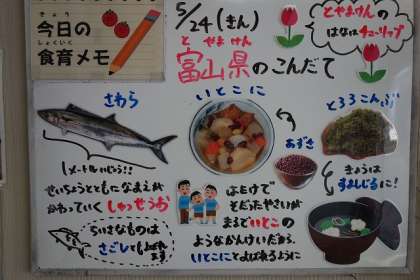 きょう
今日の
しょくいく
食育メモ
5/24(きん)
とやまけん
富山県のこんだて
とやまけんの
はなはチューリップ
さわら
1メートルいじょう!!
せいちょうとともになまえが
かわっていく しゅっせうお
ちいさなものは
さごしともよばれ
ます
いとこに
あずき
はたけで
そだったやさいが
まるでいとこの
ようなかんけいだから、
いとこにとよばれるように
とろろこんぶ
きょうは
すましじるに!